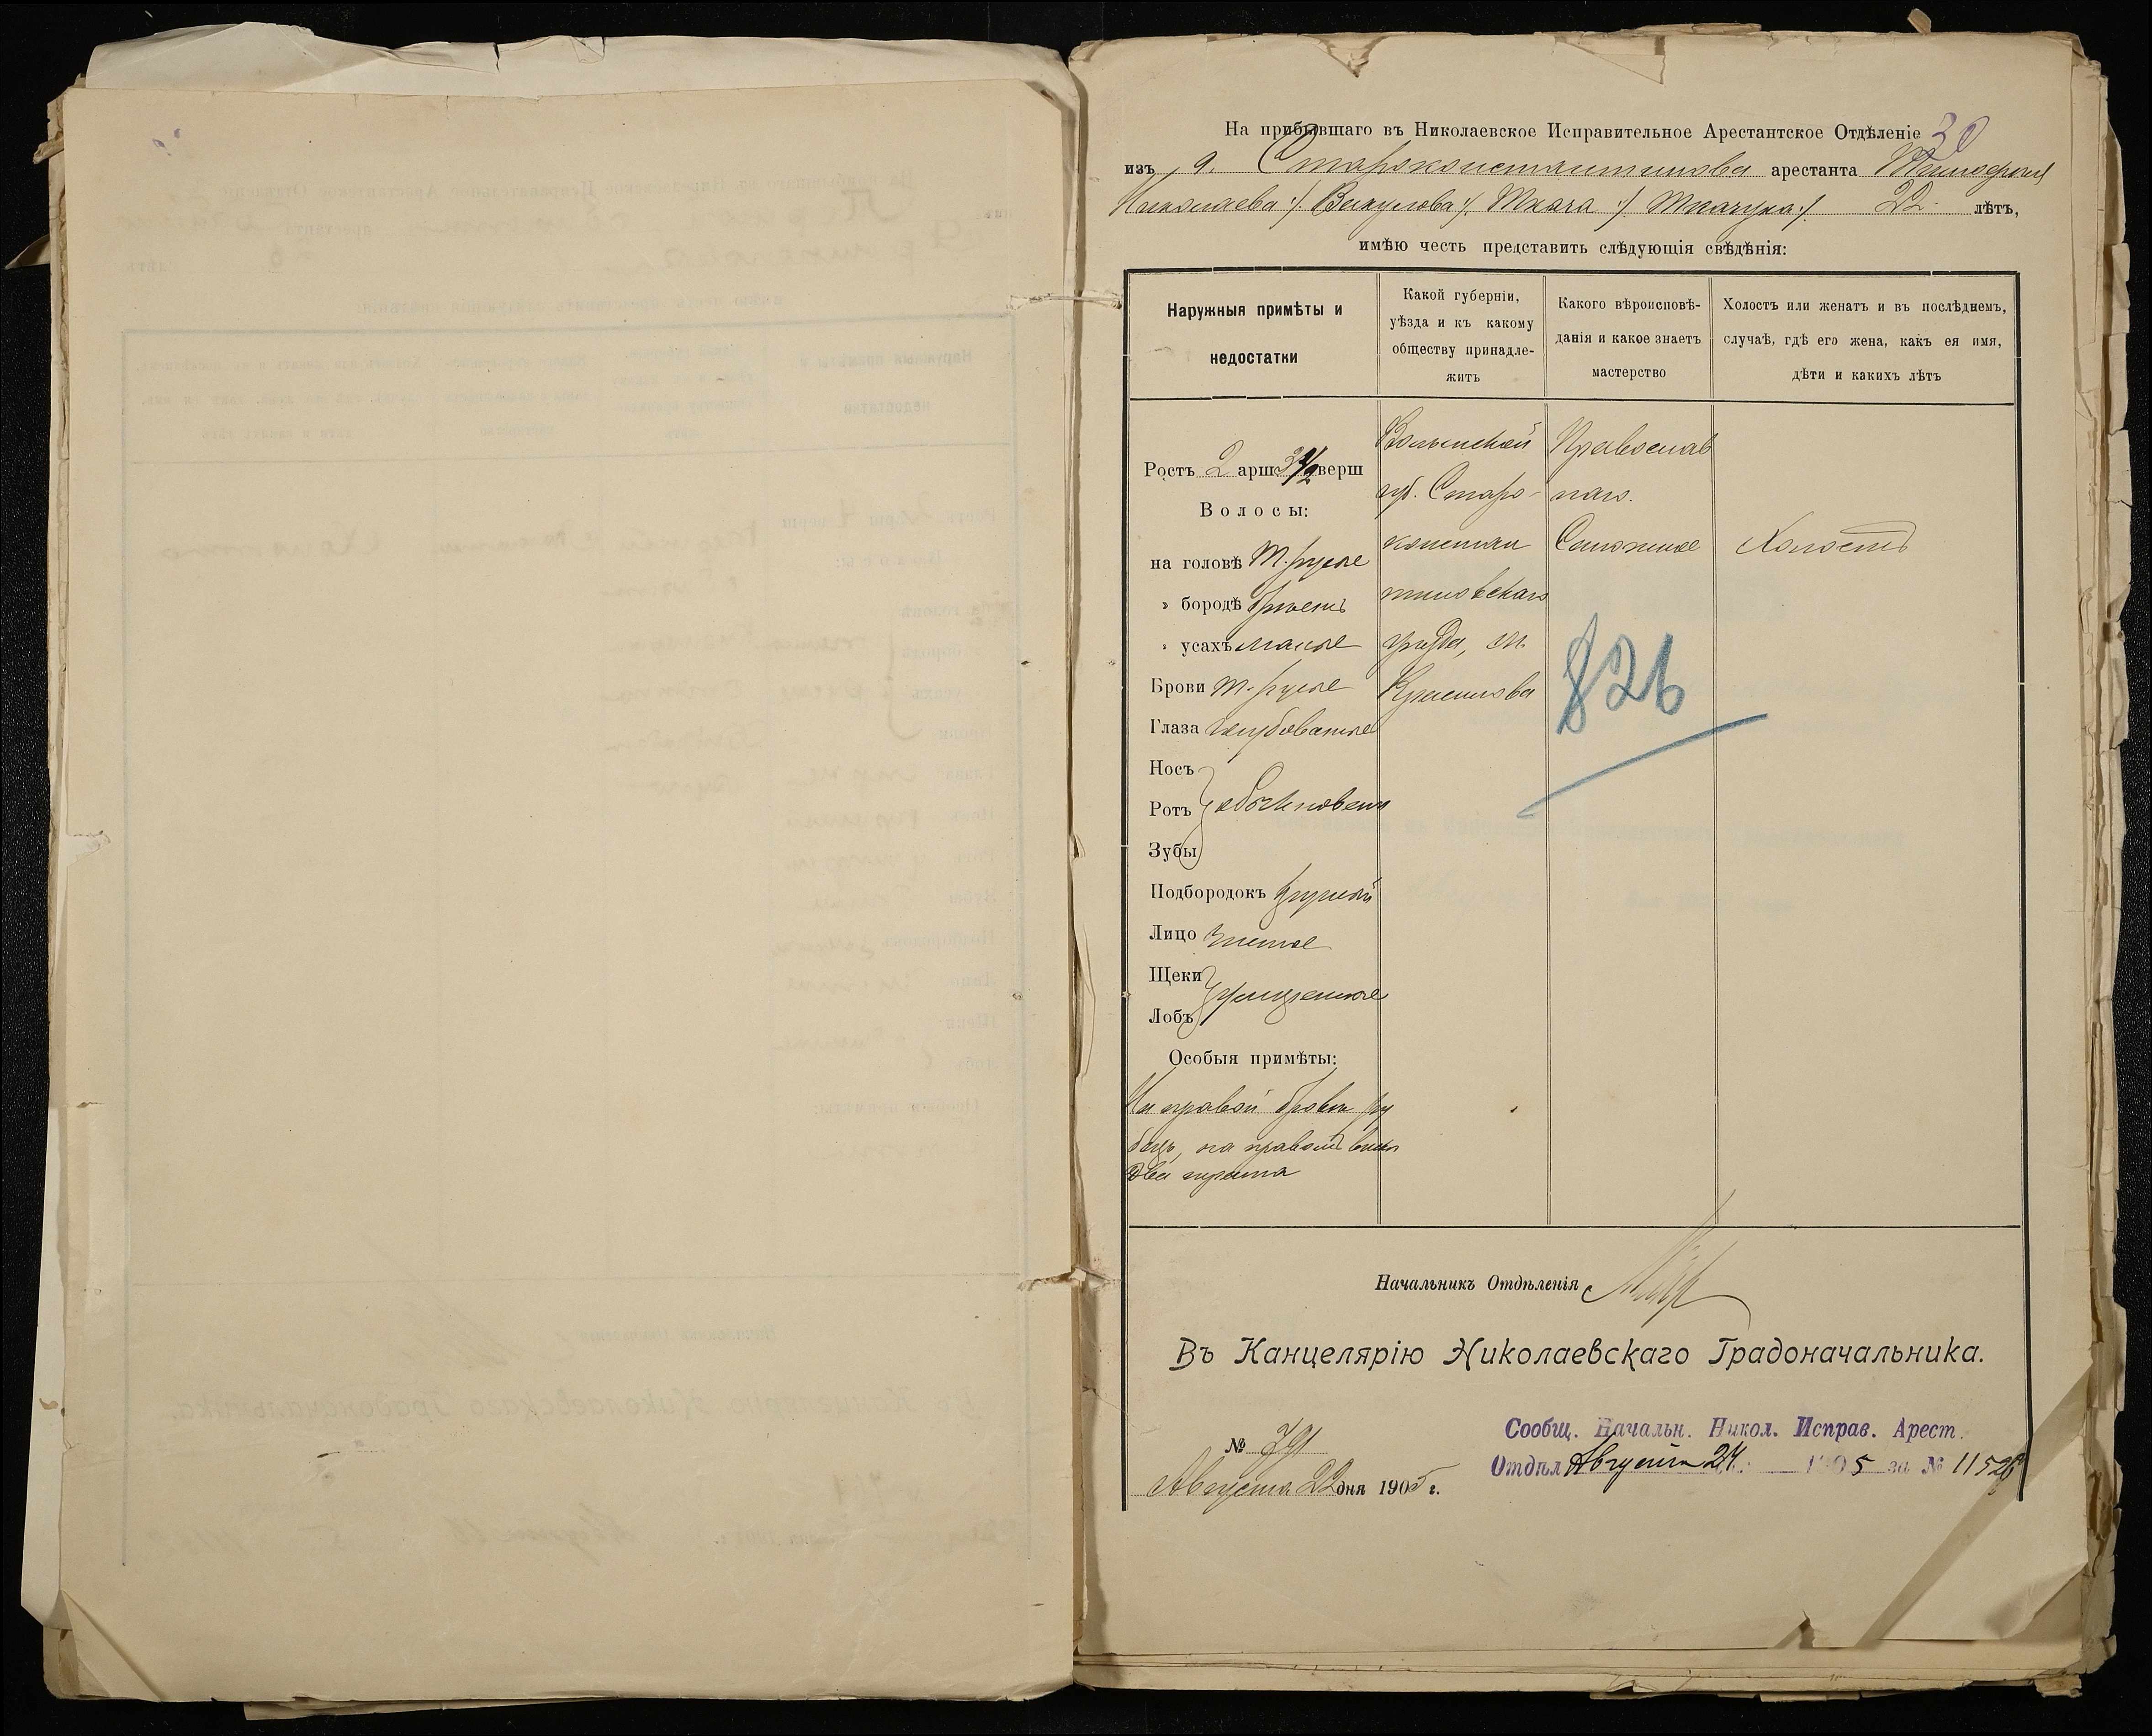 30
На прибывшаго въ Николаевское Исправительное Арестантское Отдѣленіе
изъ г. Староконстантинова арестанта Тимофея
Николаева /Викулова/ Ткача /Ткачука/ 22 лѣтъ,
имѣю честь представить слѣдующія свѣдѣнія:
Наружныя примѣты и
недостатки
Какой губерніи,
уѣзда и къ какому
обществу принадле-
житъ
Какого вѣроисповѣ-
данія и какое знаетъ
мастерство
Холостъ или женатъ и въ послѣднемъ,
случаѣ, гдѣ его жена, какъ ея имя,
дѣти и какихъ лѣтъ
Ростъ 2 арш 3 1/2 верш
Волосы:
на головѣ т. русые
" бородѣ брѣетъ
" усахъ малые
Брови т. русые
Глаза голубоватые
Носъ
Ротъ обыкновен
Зубы
Подбородокъ круглый
Лицо чистое
Щеки
Лобъ
Особыя примѣты:
На правой брови ру
бецъ, на правом виске
два
Волынской
губ. Старо-
констан
тиновскаго
уѣзда, м.
Красилова
Православ
наго.
Холостъ
826
Начальникъ Отдѣленія
Въ Канцелярію Николаевскаго Градоначальника.
№ 791
Августа 22 дня 1905 г.
Сообщ. Начальн. Никол. Исправ. Арест.
Отдѣл Августа 24 1905 за № 11526